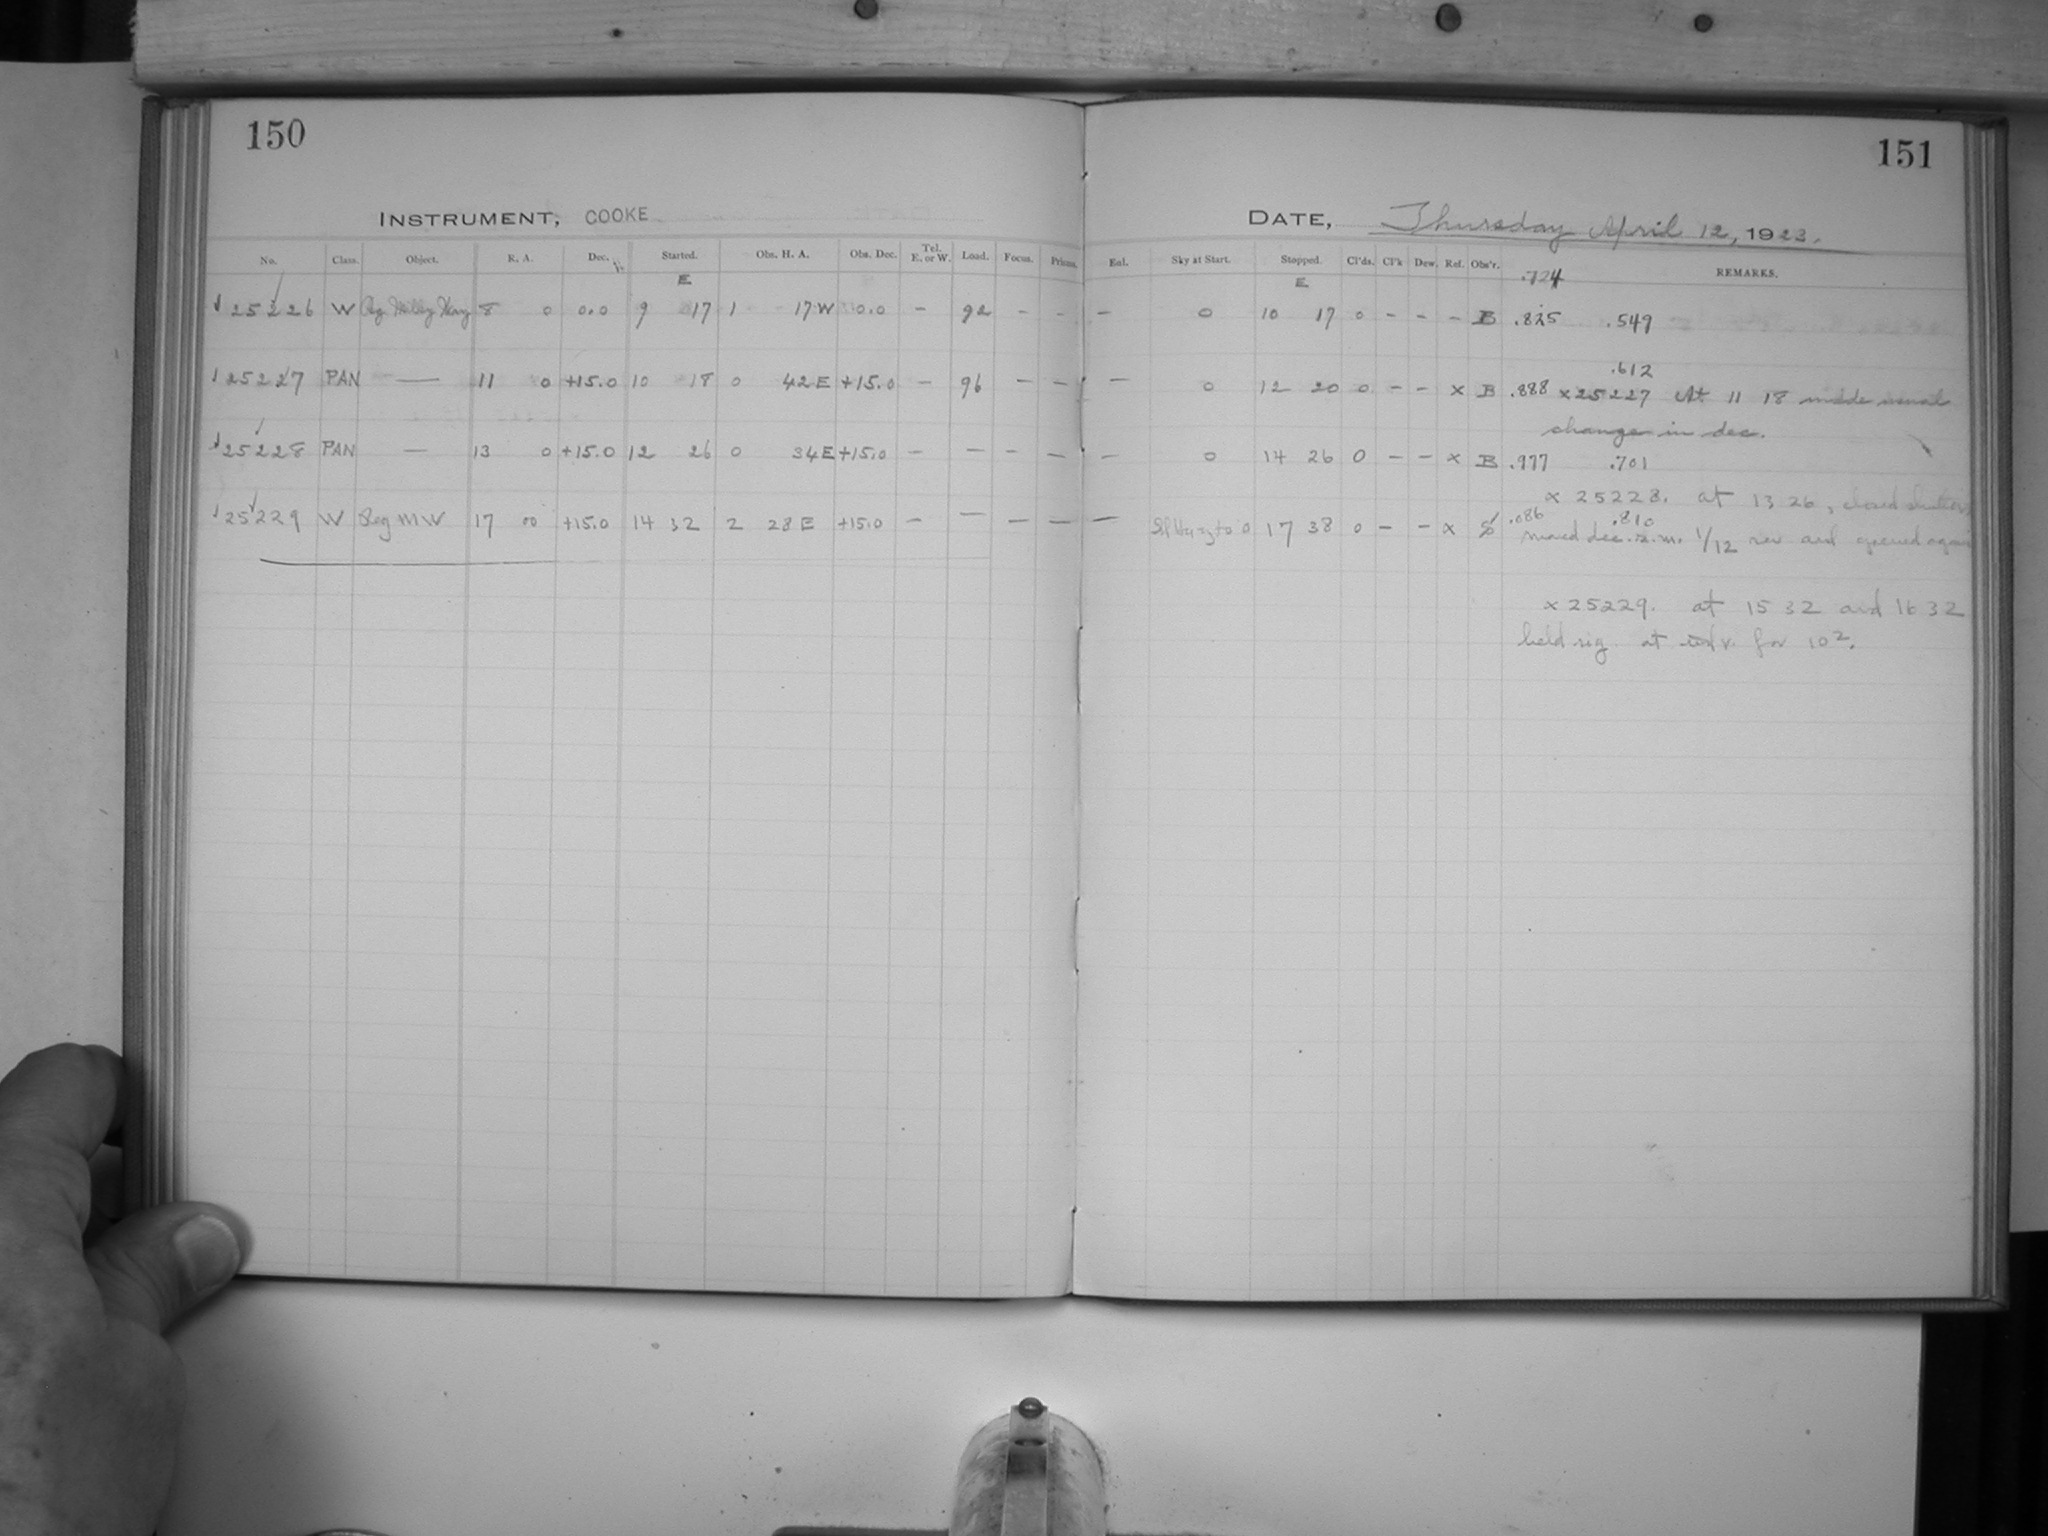 150
151
INSTRUMENT, COOKE
DATE, Thursday April 12, 1923.
No. Class. Object. R. A. Dec. Started. Obs. H. A. Obs. Dec. Tel. E. or W. Load. Focus. Prisms. Eal. Sky at Start. Stopped. Cl'ds. Cl'k Dew. Ref. Obs'r. REMARKS.
E E .724
25226 W Reg Milky Way 8 0 0.0 9 17 1 17 W 0.0 – 92 – – – 0 10 17 0 – – – B .825 .549
.612
25227 PAN — 11 0 +15.0 10 18 0 42 E +15.0 – 96 – – – 0 12 20 0 – – x B .888 x 25227 At 11 18 made usual
change in dec.
25228 PAN — 13 0 +15.0 12 26 0 34 E +15.0 – – – – – 0 14 26 0 – – x B .977 .701
x 25228. at 13 26, closed shutter
.086 .810
25229 W Reg MW 17 00 +15.0 14 32 2 28 E +15.0 – – – – – 17 38 0 – – x moved dec. s.m. 1/12 rev and opened again
x 25229. at 15 32 and 16 32
held rig. at for 10².